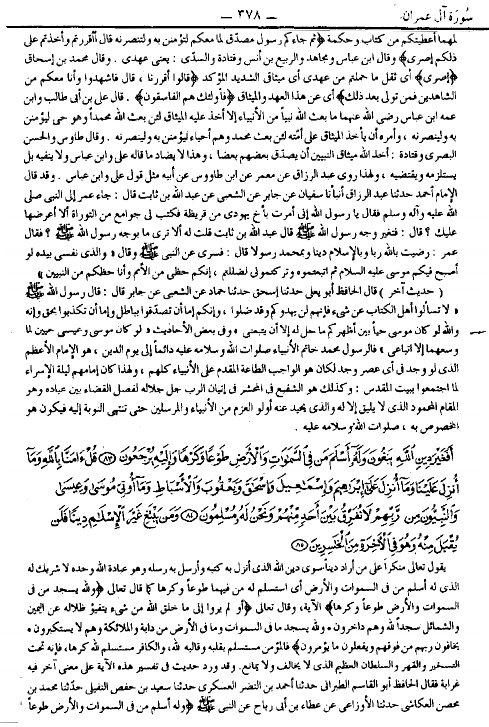 سورة آل عمران — ٣٧٨ —
لمهما أعطيتكم من كتاب وحكمة ﴿ثم جاءكم رسول مصدق لما معكم لتؤمنن به ولتنصرنه قال أأقررتم وأخذتم على
ذلكم إصرى﴾ وقال ابن عباس ومجاهد والربيع بن أنس وقتادة والسدى : يعنى عهدى . وقال محمد بن إسحاق
﴿إصرى﴾ أى ثقل ما حملتم من عهدى أى ميثاقى الشديد المؤكد ﴿قالوا أقررنا ، قال فاشهدوا وأنا معكم من
الشاهدين فمن تولى بعد ذلك﴾ أى عن هذا العهد والميثاق ﴿فأولئك هم الفاسقون﴾ . قال على بن أبى طالب وابن
عمه ابن عباس رضى الله عنهما ما بعث الله نبياً من الأنبياء إلا أخذ عليه الميثاق لئن بعث الله محمداً وهو حى ليؤمنن
به ولينصرنه ، وأمره أن يأخذ الميثاق على أمته لئن بعث محمد وهم أحياء ليؤمنن به ولينصرنه . وقال طاوس والحسن
البصرى وقتادة : أخذ الله ميثاق النبيين أن يصدق بعضهم بعضا ، وهذا لا يضاد ما قاله على وابن عباس ولا ينفيه بل
يستلزمه ويقتضيه ، ولهذا روى عبد الرزاق عن معمر عن ابن طاوس عن أبيه مثل قول على وابن عباس . وقد قال
الإمام أحمد حدثنا عبد الرزاق أنبأنا سفيان عن جابر عن الشعبى عن عبد الله بن ثابت قال : جاء عمر إلى النبى صلى
الله عليه وآله وسلم فقال يا رسول الله إنى أمرت بأخ يهودى من قريظة فكتب لى جوامع من التوراة ألا أعرضها
عليك ؟ قال : فتغير وجه رسول الله ﷺ قال عبد الله بن ثابت قلت له ألا ترى ما بوجه رسول الله ﷺ ؟ فقال
عمر : رضيت بالله ربا وبالإسلام دينا وبمحمد رسولا قال : فسرى عن النبى ﷺ وقال « والذى نفسى بيده لو
أصبح فيكم موسى عليه السلام ثم اتبعتموه وتركتمونى لضللتم ، إنكم حظى من الأمم وأنا حظكم من النبيين »
( حديث آخر ) قال الحافظ أبو يعلى حدثنا إسحق حدثنا حماد عن الشعبى عن جابر قال : قال رسول الله ﷺ
« لا تسألوا أهل الكتاب عن شىء فإنهم لن يهدوكم وقد ضلوا ، وإنكم إما أن تصدقوا بباطل وإما أن تكذبوا بحق وإنه
والله لو كان موسى حياً بين أظهركم ما حل له إلا أن يتبعنى » وفى بعض الأحاديث « لو كان موسى وعيسى حيين لما
وسعهما إلا اتباعى » فالرسول محمد خاتم الأنبياء صلوات الله وسلامه عليه دائماً إلى يوم الدين ، هو الإمام الأعظم
الذى لو وجد فى أى عصر وجد لكان هو الواجب الطاعة المقدم على الأنبياء كلهم ، ولهذا كان إمامهم ليلة الإسراء
لما اجتمعوا ببيت المقدس : وكذلك هو الشفيع فى المحشر فى إتيان الرب جل جلاله لفصل القضاء بين عباده وهو
المقام المحمود الذى لا يليق إلا له والذى يحيد عنه أولو العزم من الأنبياء والمرسلين حتى تنتهى النوبة إليه فيكون هو
المخصوص به ، صلوات الله وسلامه عليه .
أَفَغَيْرَ دِينِ اللَّهِ يَبْغُونَ وَلَهُ أَسْلَمَ مَن فِى السَّمَوَاتِ وَالْأَرْضِ طَوْعًا وَكَرْهًا وَإِلَيْهِ يُرْجَعُونَ ﴿٨٣﴾ قُلْ ءَامَنَّا بِاللَّهِ وَمَا
أُنزِلَ عَلَيْنَا وَمَا أُنزِلَ عَلَى إِبْرَاهِيمَ وَإِسْمَاعِيلَ وَإِسْحَاقَ وَيَعْقُوبَ وَالْأَسْبَاطِ وَمَا أُوتِىَ مُوسَى وَعِيسَى
وَالنَّبِيُّونَ مِن رَّبِّهِمْ لَا نُفَرِّقُ بَيْنَ أَحَدٍ مِّنْهُمْ وَنَحْنُ لَهُ مُسْلِمُونَ ﴿٨٤﴾ وَمَن يَبْتَغِ غَيْرَ الْإِسْلَامِ دِينًا فَلَن
يُقْبَلَ مِنْهُ وَهُوَ فِى الْآخِرَةِ مِنَ الْخَاسِرِينَ ﴿٨٥﴾
يقول تعالى منكراً على من أراد ديناً سوى دين الله الذى أنزل به كتبه وأرسل به رسله وهو عبادة الله وحده لا شريك له
الذى له أسلم من فى السموات والأرض أى استسلم له من فيهما طوعاً وكرها كما قال تعالى ﴿ولله يسجد من فى
السموات والأرض طوعاً وكرها﴾ الآية ، وقال تعالى ﴿أو لم يروا إلى ما خلق الله من شىء يتفيؤ ظلاله عن اليمين
والشمائل سجداً لله وهم داخرون • ولله يسجد ما فى السموات وما فى الأرض من دابة والملائكة وهم لا يستكبرون •
يخافون ربهم من فوقهم ويفعلون ما يؤمرون﴾ فالمؤمن مستسلم بقلبه وقالبه لله ، والكافر مستسلم لله كرها ، فإنه تحت
التسخير والقهر والسلطان العظيم الذى لا يخالف ولا يمانع . وقد ورد حديث فى تفسير هذه الآية على معنى آخر فيه
غرابة فقال الحافظ أبو القاسم الطبرانى حدثنا أحمد بن النضر العسكرى حدثنا سعيد بن حفص النفيلى حدثنا محمد بن
محصن العكاشى حدثنا الأوزاعى عن عطاء بن أبى رباح عن النبى ﷺ ﴿وله أسلم من فى السموات والأرض طوعاً